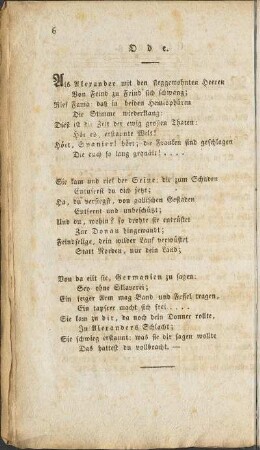 6
Ode.
Als Alexander mit den sieggewohnten Heeren
Von Feind zu Feind sich schwang;
Rief Fama: daß in beiden Hemisphären
Die Stimme wiederklang:
Dieß ist die Zeit der ewig großen Thaten:
Hör es, erstaunte Welt!
Hört, Spanier! hört; die Franken sind geschlagen
Die euch so lang gequält! . . . .
Sie kam und rief der Seine: die zum Schaden
Entuferst du dich jetzt;
Ha, du versiegst, von gallischen Gestaden
Entfernt und unbeschützt;
Und du, wohin? so drohte sie entrüstet
Zur Donau hingewandt;
Feindselige, dein wilder Lauf verwüstet
Statt Norden, nur dein Land;
Von da eilt sie, Germanien zu sagen:
Sey ohne Sklaverei;
Ein träger Arm mag Band und Fessel tragen,
Ein tapferer macht sich frei. . . .
Sie kam zu dir, da noch dein Donner rollte,
In Alexanders Schlacht;
Sie schwieg erstaunt: was sie dir sagen wollte
Das hattest du vollbracht. —